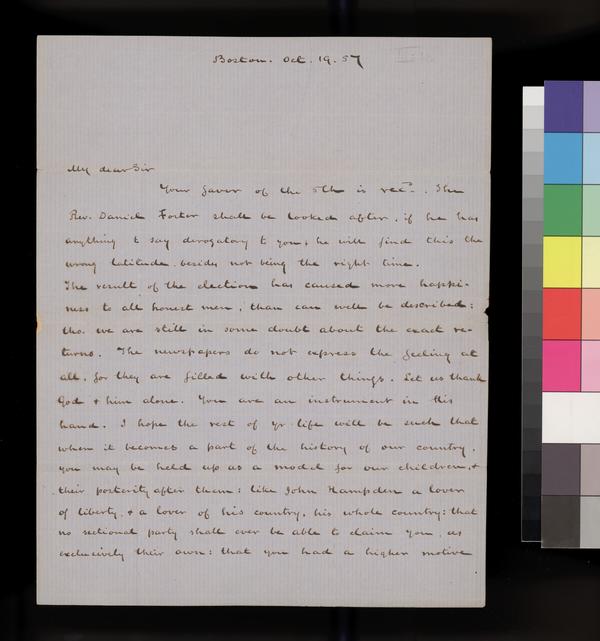 Boston. Oct. 19. 57
My dear Sir
Your favor of the 5th is recd.. The
Rev. Daniel Foster shall be looked after. if he has
anything to say derogatory to you, he will find this the
wrong latitude. besides not being the right time.
The result of the election has caused more happi-
ness to all honest men, than can well be described:
tho. we are still in some doubt about the exact re-
turns. The newspapers do not express the feeling at
all, for they are filled with other things. Let us thank
God & him alone. You are an instrument in this
hand. I hope the rest of yr life will be such that
when it becomes a part of the history of our country.
you may be held up as a model for our children, &
their posterity after them: like John Hampden a lover
of liberty, & a lover of his country, his whole country: that
no sectional party shall ever be able to claim you, as
exclusively their own: that you had a higher motive